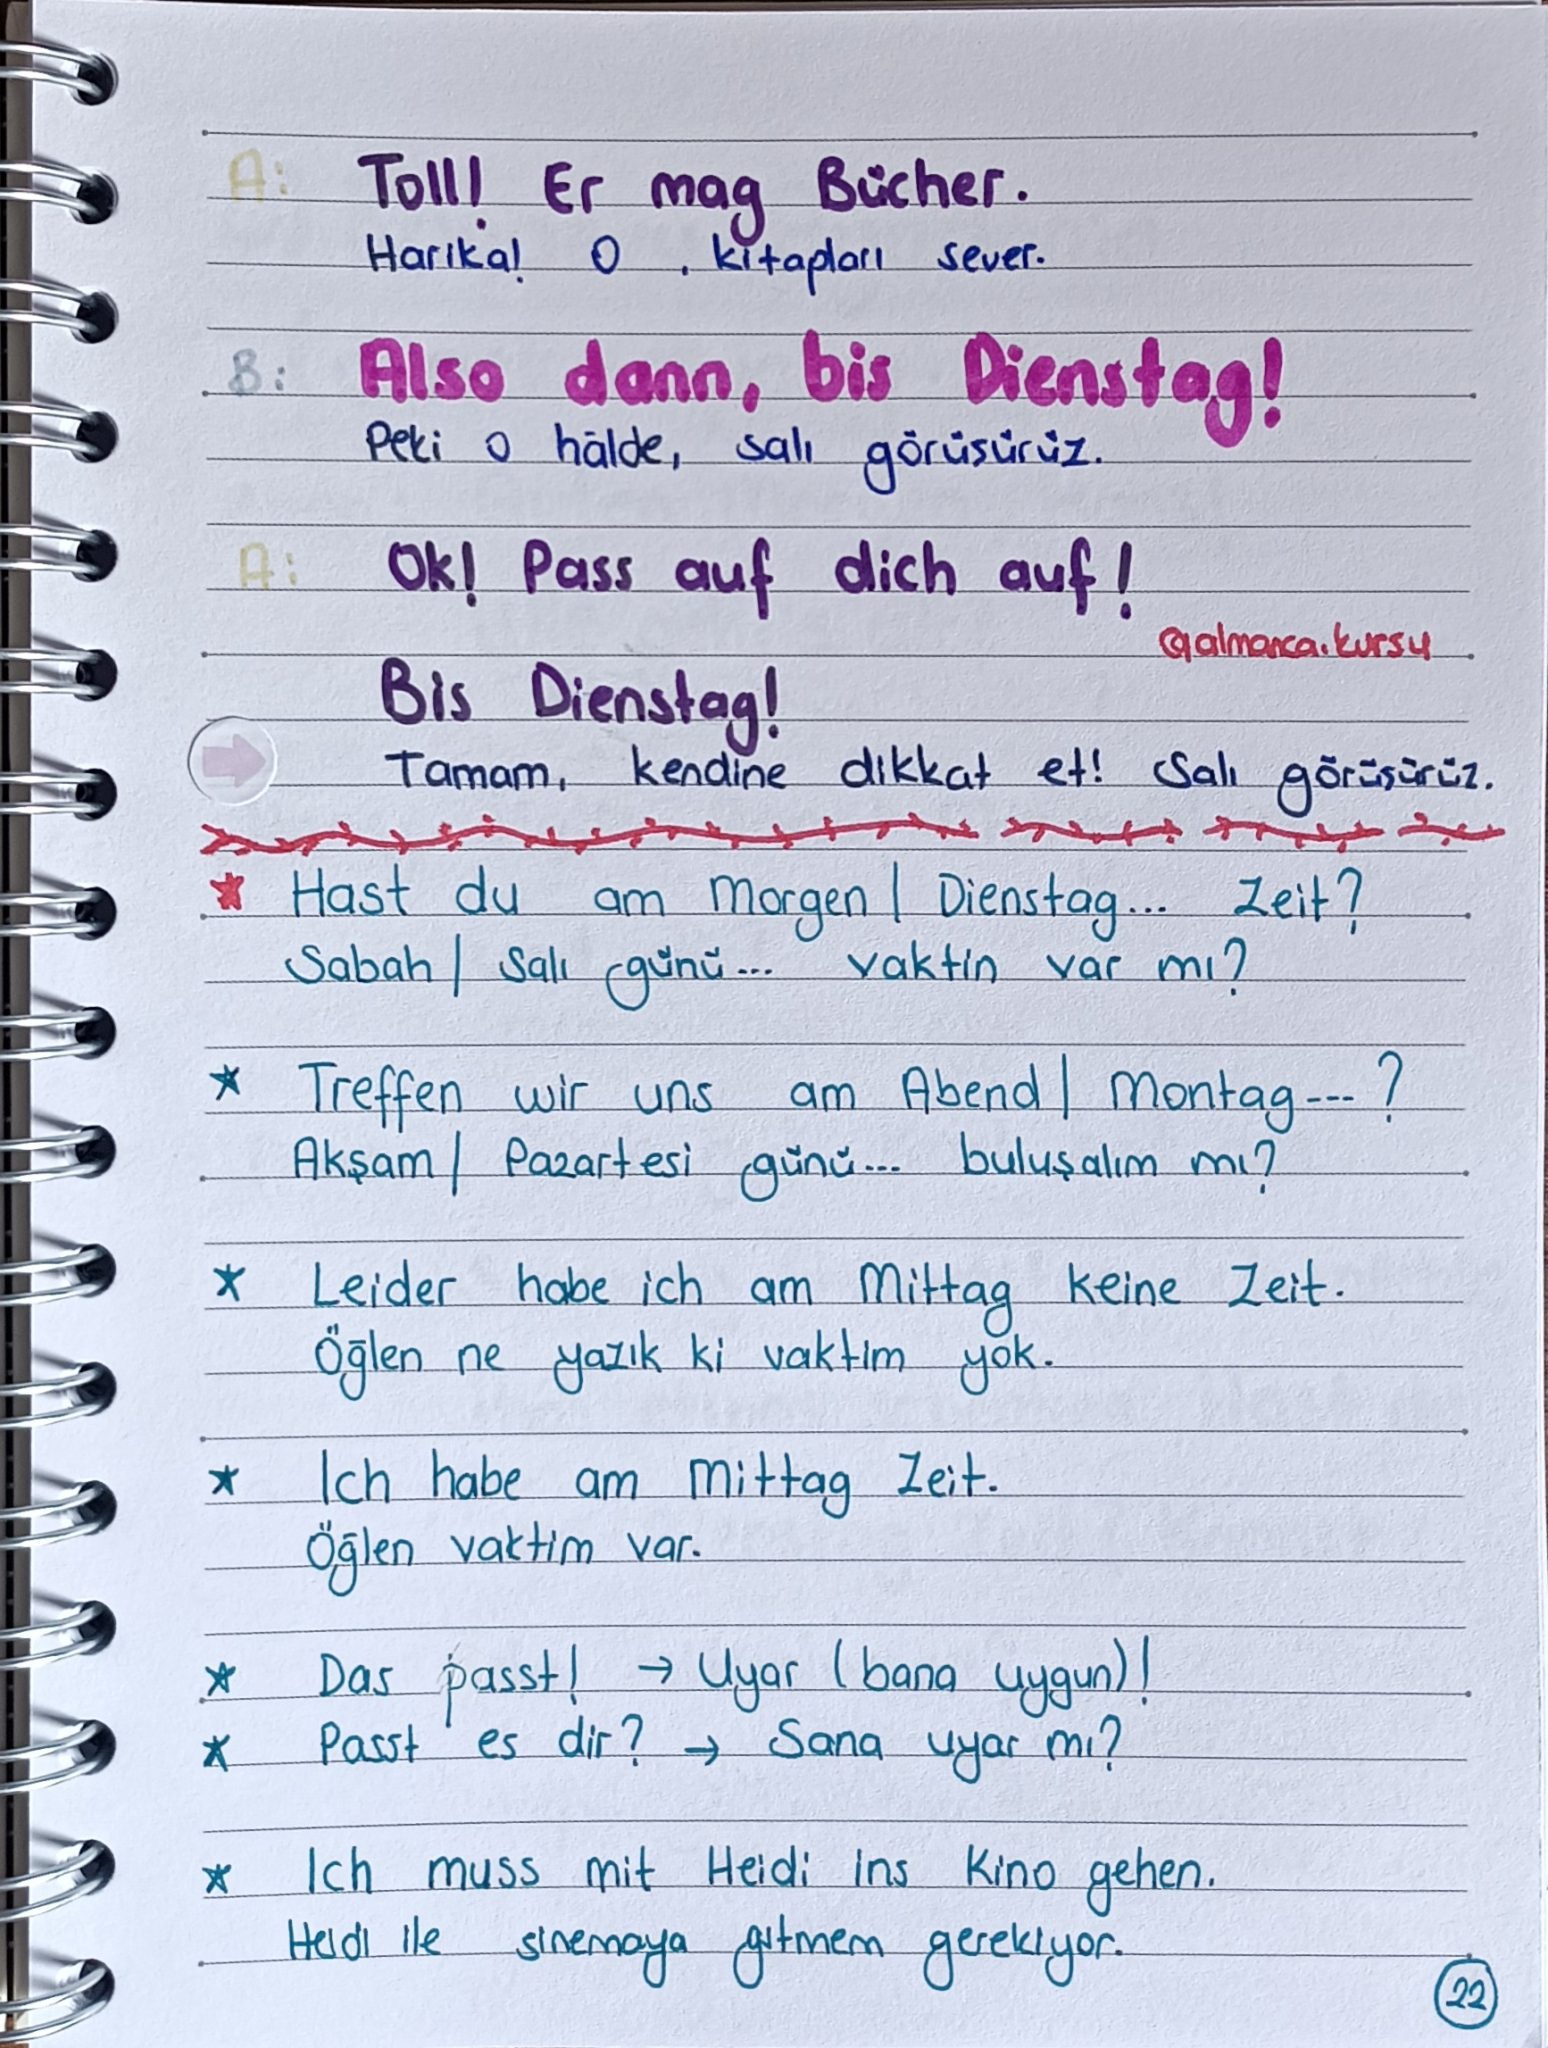 A: Toll! Er mag Bücher.
Harika! O , kitapları sever.
B: Also dann, bis Dienstag!
Peki o hâlde, salı görüşürüz.
A: Ok! Pass auf dich auf!
@almanca.kursu
Bis Dienstag!
Tamam, kendine dikkat et! Salı görüşürüz.
* Hast du am Morgen / Dienstag... Zeit?
Sabah / Salı günü... vaktin var mı?
* Treffen wir uns am Abend / Montag---?
Akşam / Pazartesi günü... buluşalım mı?
* Leider habe ich am Mittag keine Zeit.
Öğlen ne yazık ki vaktim yok.
* Ich habe am Mittag Zeit.
Öğlen vaktim var.
* Das passt! → Uyar (bana uygun)!
* Passt es dir? → Sana uyar mı?
* Ich muss mit Heidi ins Kino gehen.
Heidi ile sinemaya gitmem gerekiyor.
22